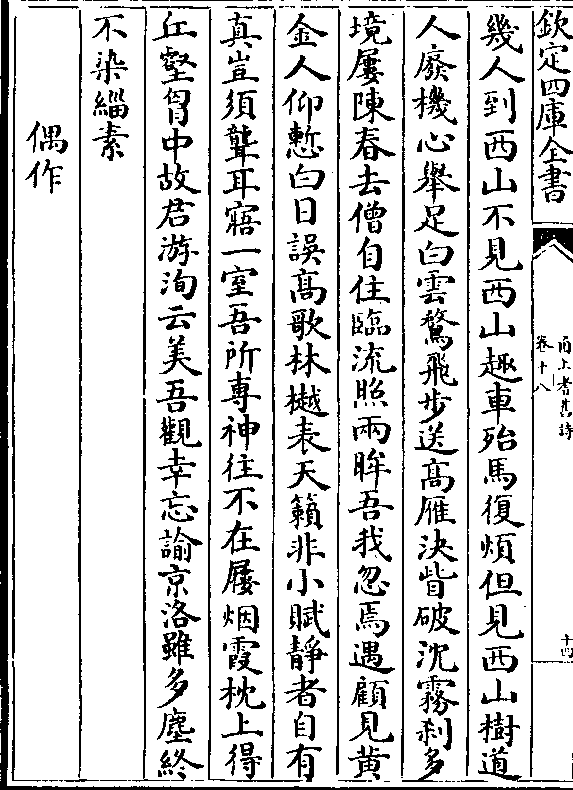 欽定四庫全書
甬上耆舊詩
卷十八
十四
幾人到西山不見西山趣車殆馬復煩但見西山樹道
人廢機心舉足白雲騖飛步送高雁決眥破沈霧刹多
境屢陳春去僧自住臨流照兩眸吾我忽焉遇顧見黄
金人仰慙白日誤高歌林樾表天籟非小賦靜者自有
真豈須聾耳寤一室吾所專神往不在屨烟霞枕上得
丘壑胷中故君游洵云美吾觀幸忘諭京洛雖多塵終
不染緇素
偶作